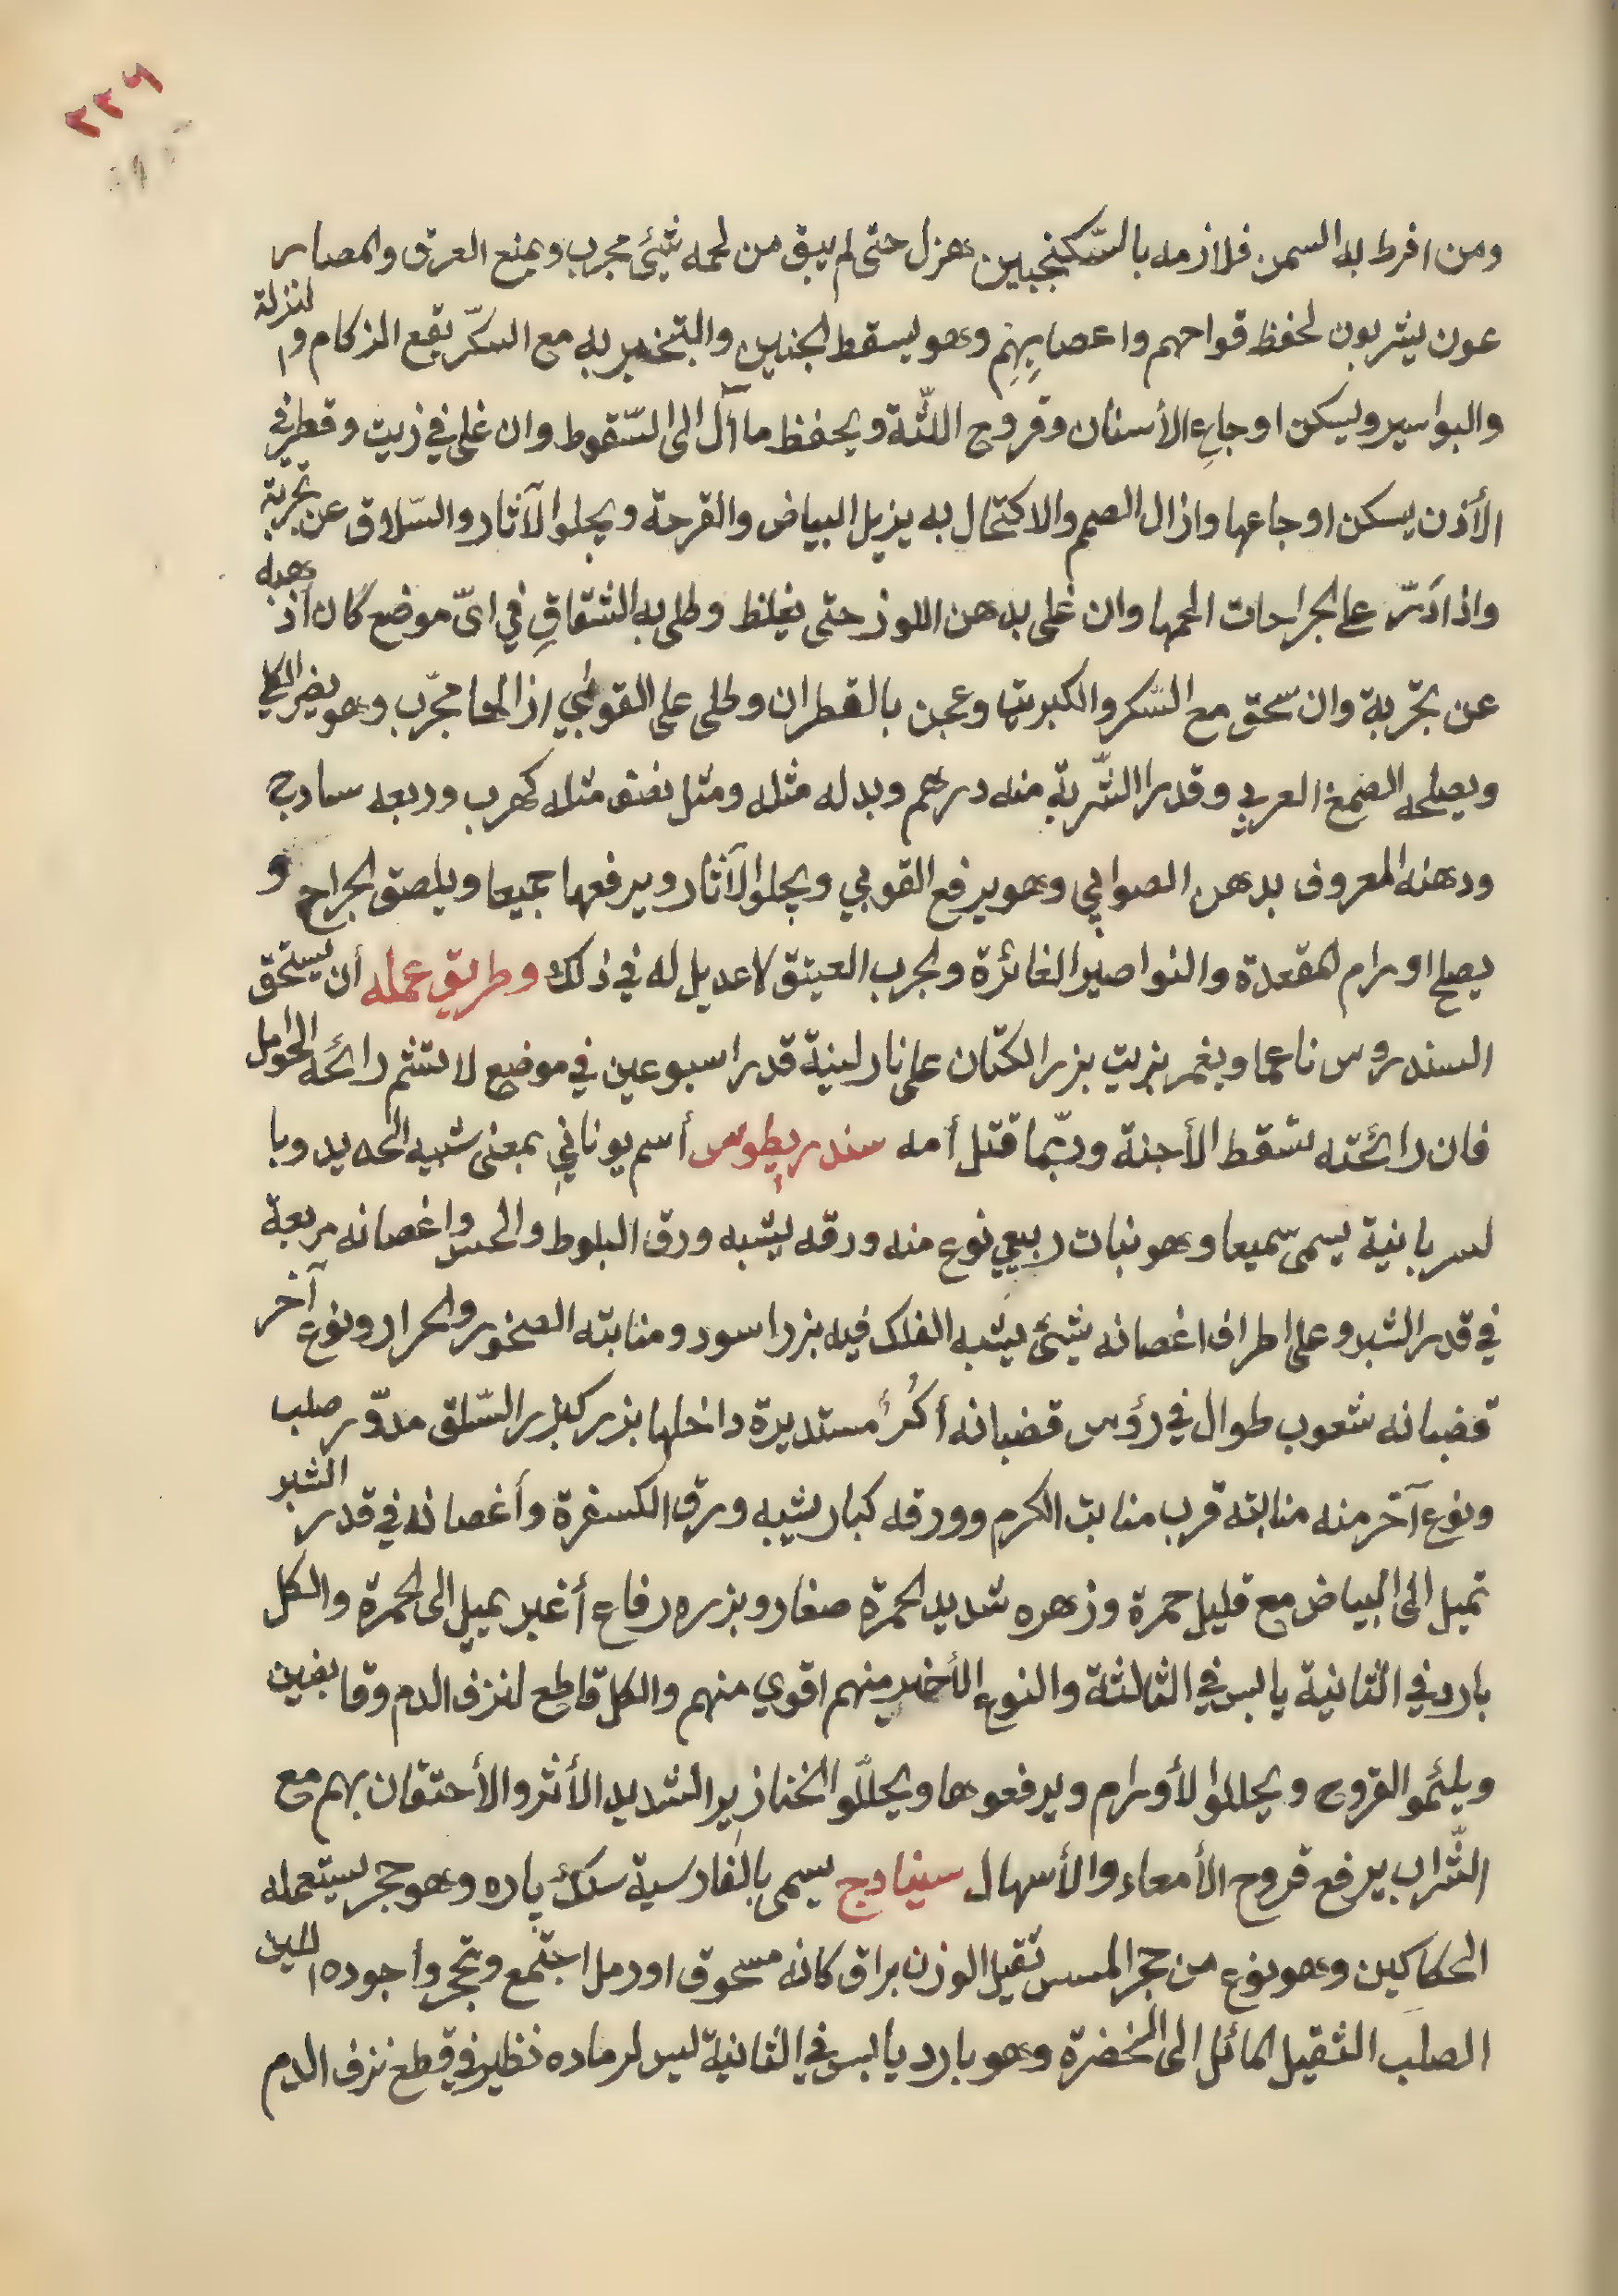 ٢٢٦
ومن افرط به السمن فلازمه بالسّكنجبين هزل حتى لم يبق من لحمه شيئ مجرب ويمنع العرق والمصار
عون يشربون لحفظ قواحهم واعصابِهِم وهو يسقط الجنين والتبخير به مع السكّر يقع الزكام والنزلة
والبواسير ويسكن اوجاعِ الأسنان وقروح اللثّة ويحفظ ما آل الى السّقوط وان غلى في زيت وقطر في
الأذن يسكن اوجاعها وازال الصمم والاكتحال به يزيل البياض والقرحة ويجلو الآثار والسّلاق عن تجربة
واذا ذرّ على الجراحات الحمها وان غلى بدهن اللوز حتى يغلظ وطلى به الشقاقِ في ايّ موضع كان أذهبه
عن تجربة وان سحق مع السّكر والكبريت وعجن بالقطران وطلى على القوابي ازالها مجرّب وهو يضر الكلي
ويصلحه الصمغ العربي وقدر الشّربة منه درهم وبدله مثله ومثل نصف مثله كهرب وربعه سادج
ودهنه المعروف بدهن الصوابي وهو يرفع القوبي ويجلو الآثار ويرفعها جميعا ويلصق الجراح و
يصلح اورام المقعدة والنواصير الغائرة والجرب العيتق لا عديل له في ذلك وطريق عمله أن يستحق
السندروس ناعما ويغمر بزيت بزر الكتان على نار لينة قدر اسبوعين في موضع لا تشم رائحه الحوامل
فان رائحته تسقط الأجنة وربّما قتل أمه سندريطوس أسم يوناني بمعنى شبيه الحديد وبا
لسريانية يسمى سميعا وهو نبات ربيعي نوع منه ورقه يشبه ورق البلوط والخس واغصانه مربعة
في قدر الشبر وعلى اطراف اغصانه شيئ يشبه الفلك فيه بزر اسود ومنابته الصخور والحرار ونوع آخر
قضبانه شعوب طوال في رؤس قضبانه أكُرُ مستديرة داخلها بزر كبزر السّلق مدوّر صلب
ونوع آخر منه منابته قرب منابت الكرم وورقه كبار يشبه ورق الكسفرة وأغصانه في قدر الشبر
تميل الى البياض مع قليل حمرة وزهره شديد الحمرة صغار وبزره رفاع أغبر يميل الى الحمرة والكل
بارد في الثانية يابس في الثالثة والنوع الأخير منهم اقوي منهم والكل قاطع لنزف الدم وقابضين
ويلئمو القروح ويحللوا الأورام ويرفعوها ويحللّوا الخنازير الشديد الأثر والأحتقان بهم مع
الشّراب يرفع قروح الأمعاء والأسهال سينادج يسمى بالفارسية سنك ياره وهو حجر يستعمله
الحكاكين وهو نوع من حجر المسس ثقيل الوزن براق كانه مسحوق اورمل اجتمع وتحجر وأجوده اللين
الصلب الثقيل المائل الى الخضرة وهو بارد يابس في الثانية ليس لرماده نظير في قطع نزف الدم